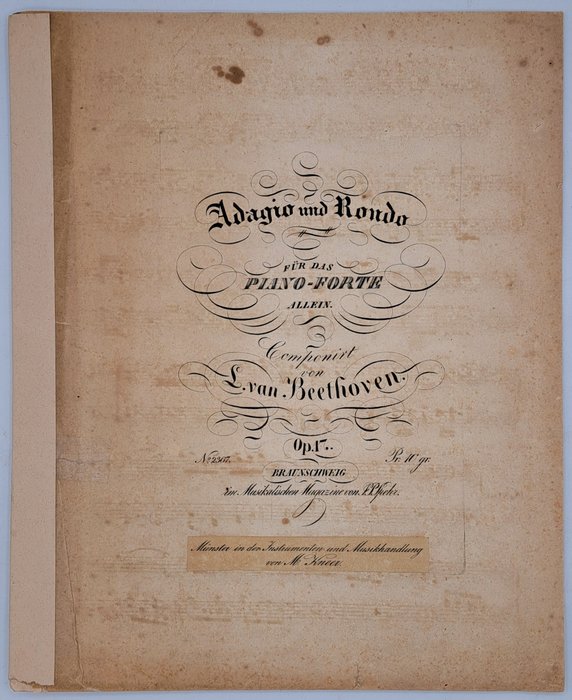 Adagio und Rondo
FÜR DAS
PIANO-FORTE
ALLEIN.
Componirt
von
L. van Beethoven.
Op.17..
No. 2307. Pr. 10 gr.
BRAUNSCHWEIG
im Musikalischen Magazine von J.P. Spehr.
Münster in der Instrumenten und Musikhandlung
von M. Kneer.